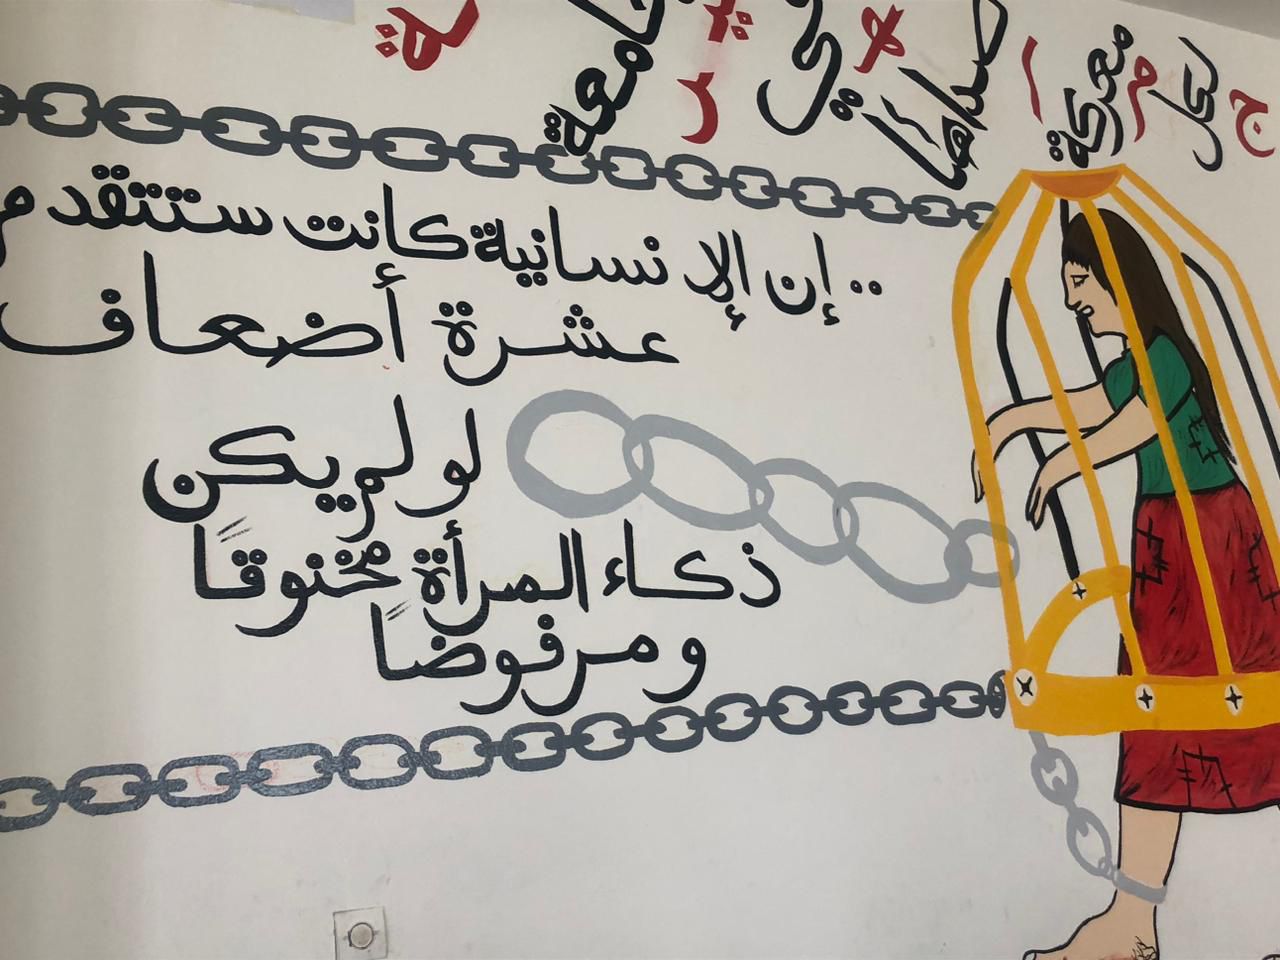 لكل معركة صداها في
.. إن الإنسانية كانت ستتقدم
عشرة أضعاف
لو لم يكن
ذكاء المرأة مخنوقًا
ومرفوضًا